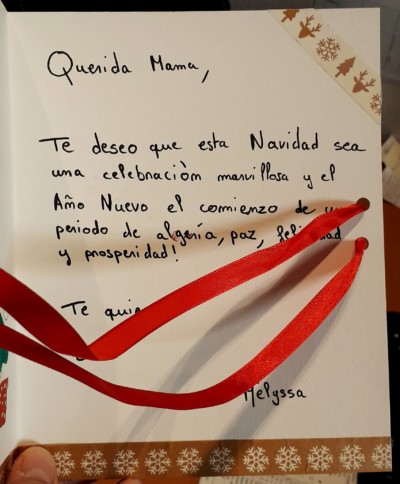 Querida Mama,
Te deseo que esta Navidad sea
una celebraciòn manvillosa y el
Año Nuevo el comienzo de
periodo de algenía, paz,
y prosperidad!
Te
Melyssa